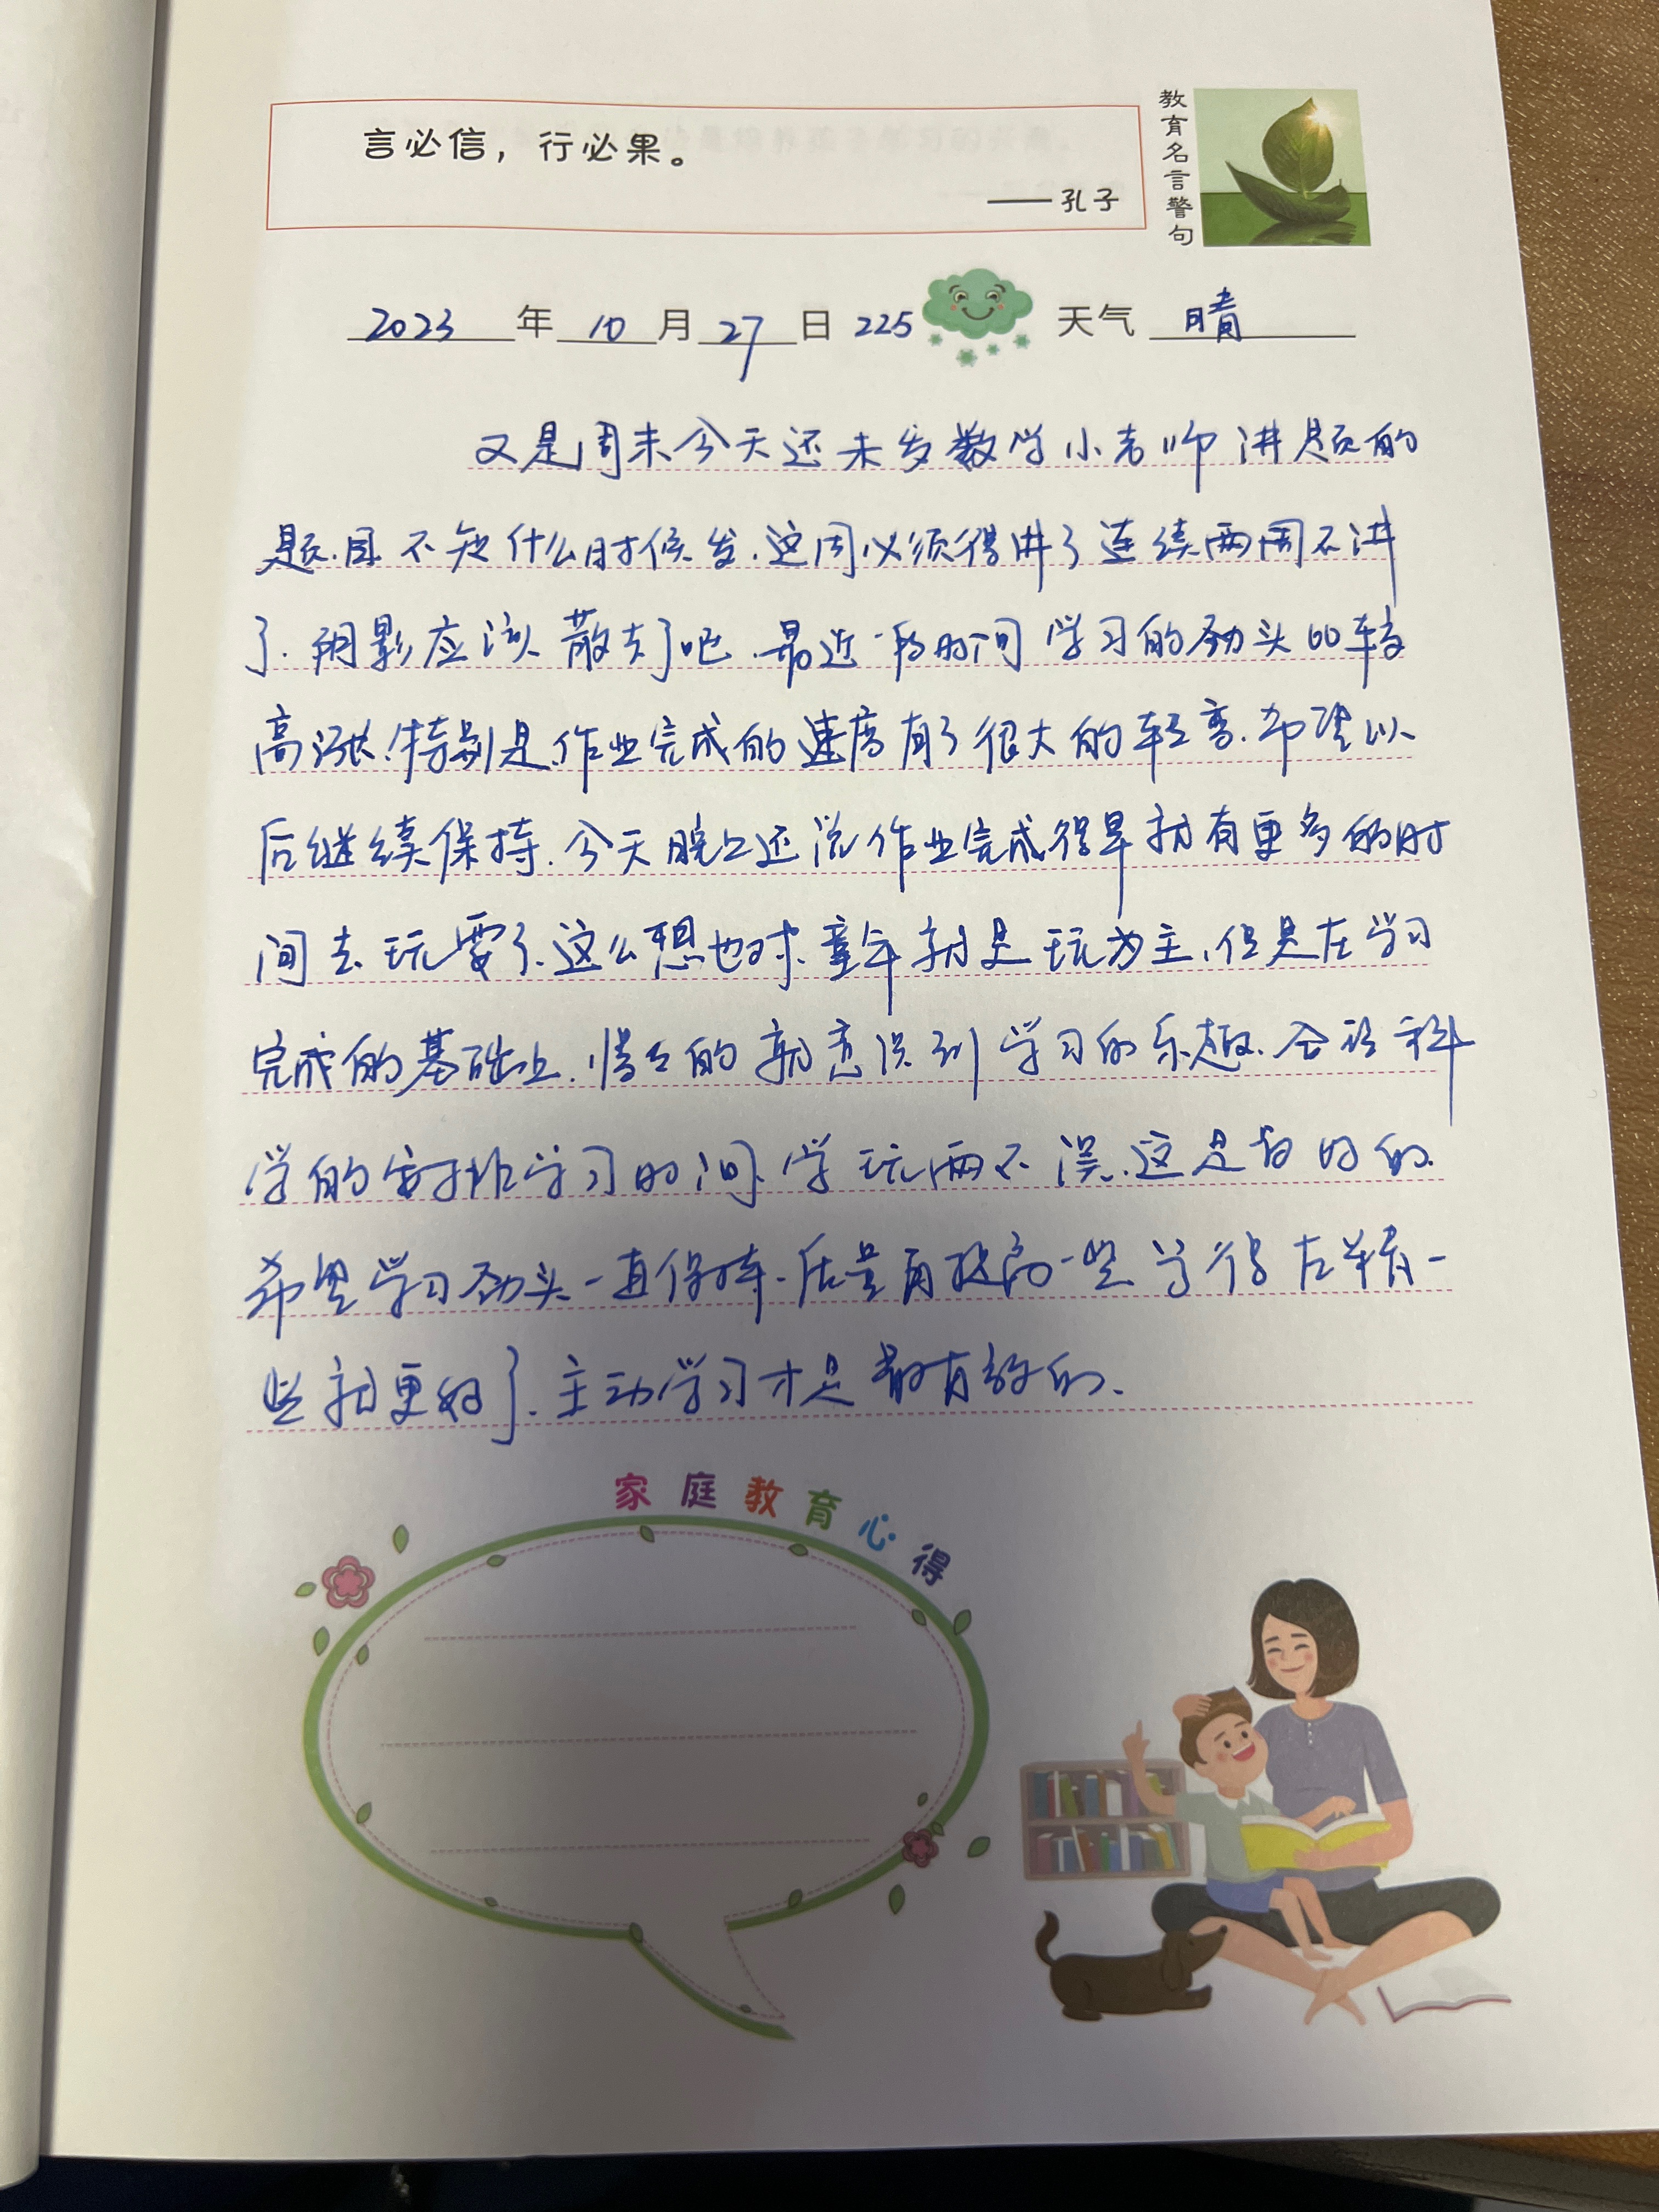 言必信，行必果。
——孔子
教育名言警句
2023年10月27日 225 天气 晴
又是周末今天还未发数学小老师讲题的
题目.不知什么时候发.这周必须得讲了连续两周不讲
了.阴影应该散去了吧.最近一段时间学习的劲头比较
高涨!特别是作业完成的速度有了很大的转变.希望以
后继续保持.今天晚上还说作业完成得早就有更多的时
间去玩耍了.这么想也对.童年就是玩为主,但是在学习
完成的基础上.慢慢的就意识到学习的乐趣.合理科
学的安排学习时间.学玩两不误.这是最好的.
希望学习劲头一直保持.质量再提高一些.写得在认真一
些就更好了.主动学习才是最有效的.
家庭教育心得